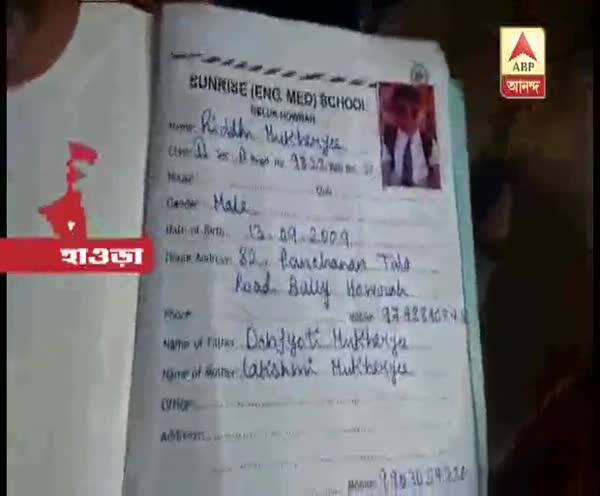 ABP
আনন্দ
SUNRISE (ENG. MED) SCHOOL
BELUR HOWRAH
Name: Riddhi Mukherjee
Class: II Sec. A
House
Gender Male
Date of Birth 13.09.2009
Home Address: 82, Panchanan Tala
Road Bally Howrah
হাওড়া
Phone
Name of Father Debjyoti Mukherjee
Name of Mother Lakshmi Mukherjee
Office
Address
Mobile: